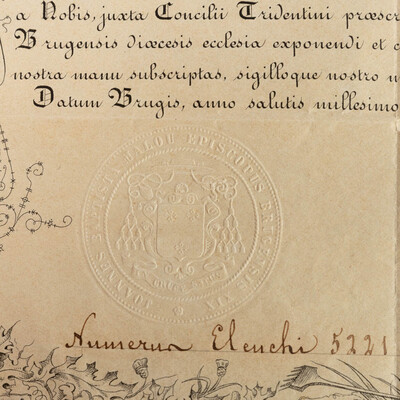 a Nobis, juxta Concilii Tridentini præscr
Brugensis diœcesis ecclesia exponendi et
nostra manu subscriptas, sigilloque nostro
Datum Brugis, anno salutis millesimo
JOANNES BAPTISTA MALOU EPISCOPUS BRUGENSIS XVIII
Numerus Elenchi 5221